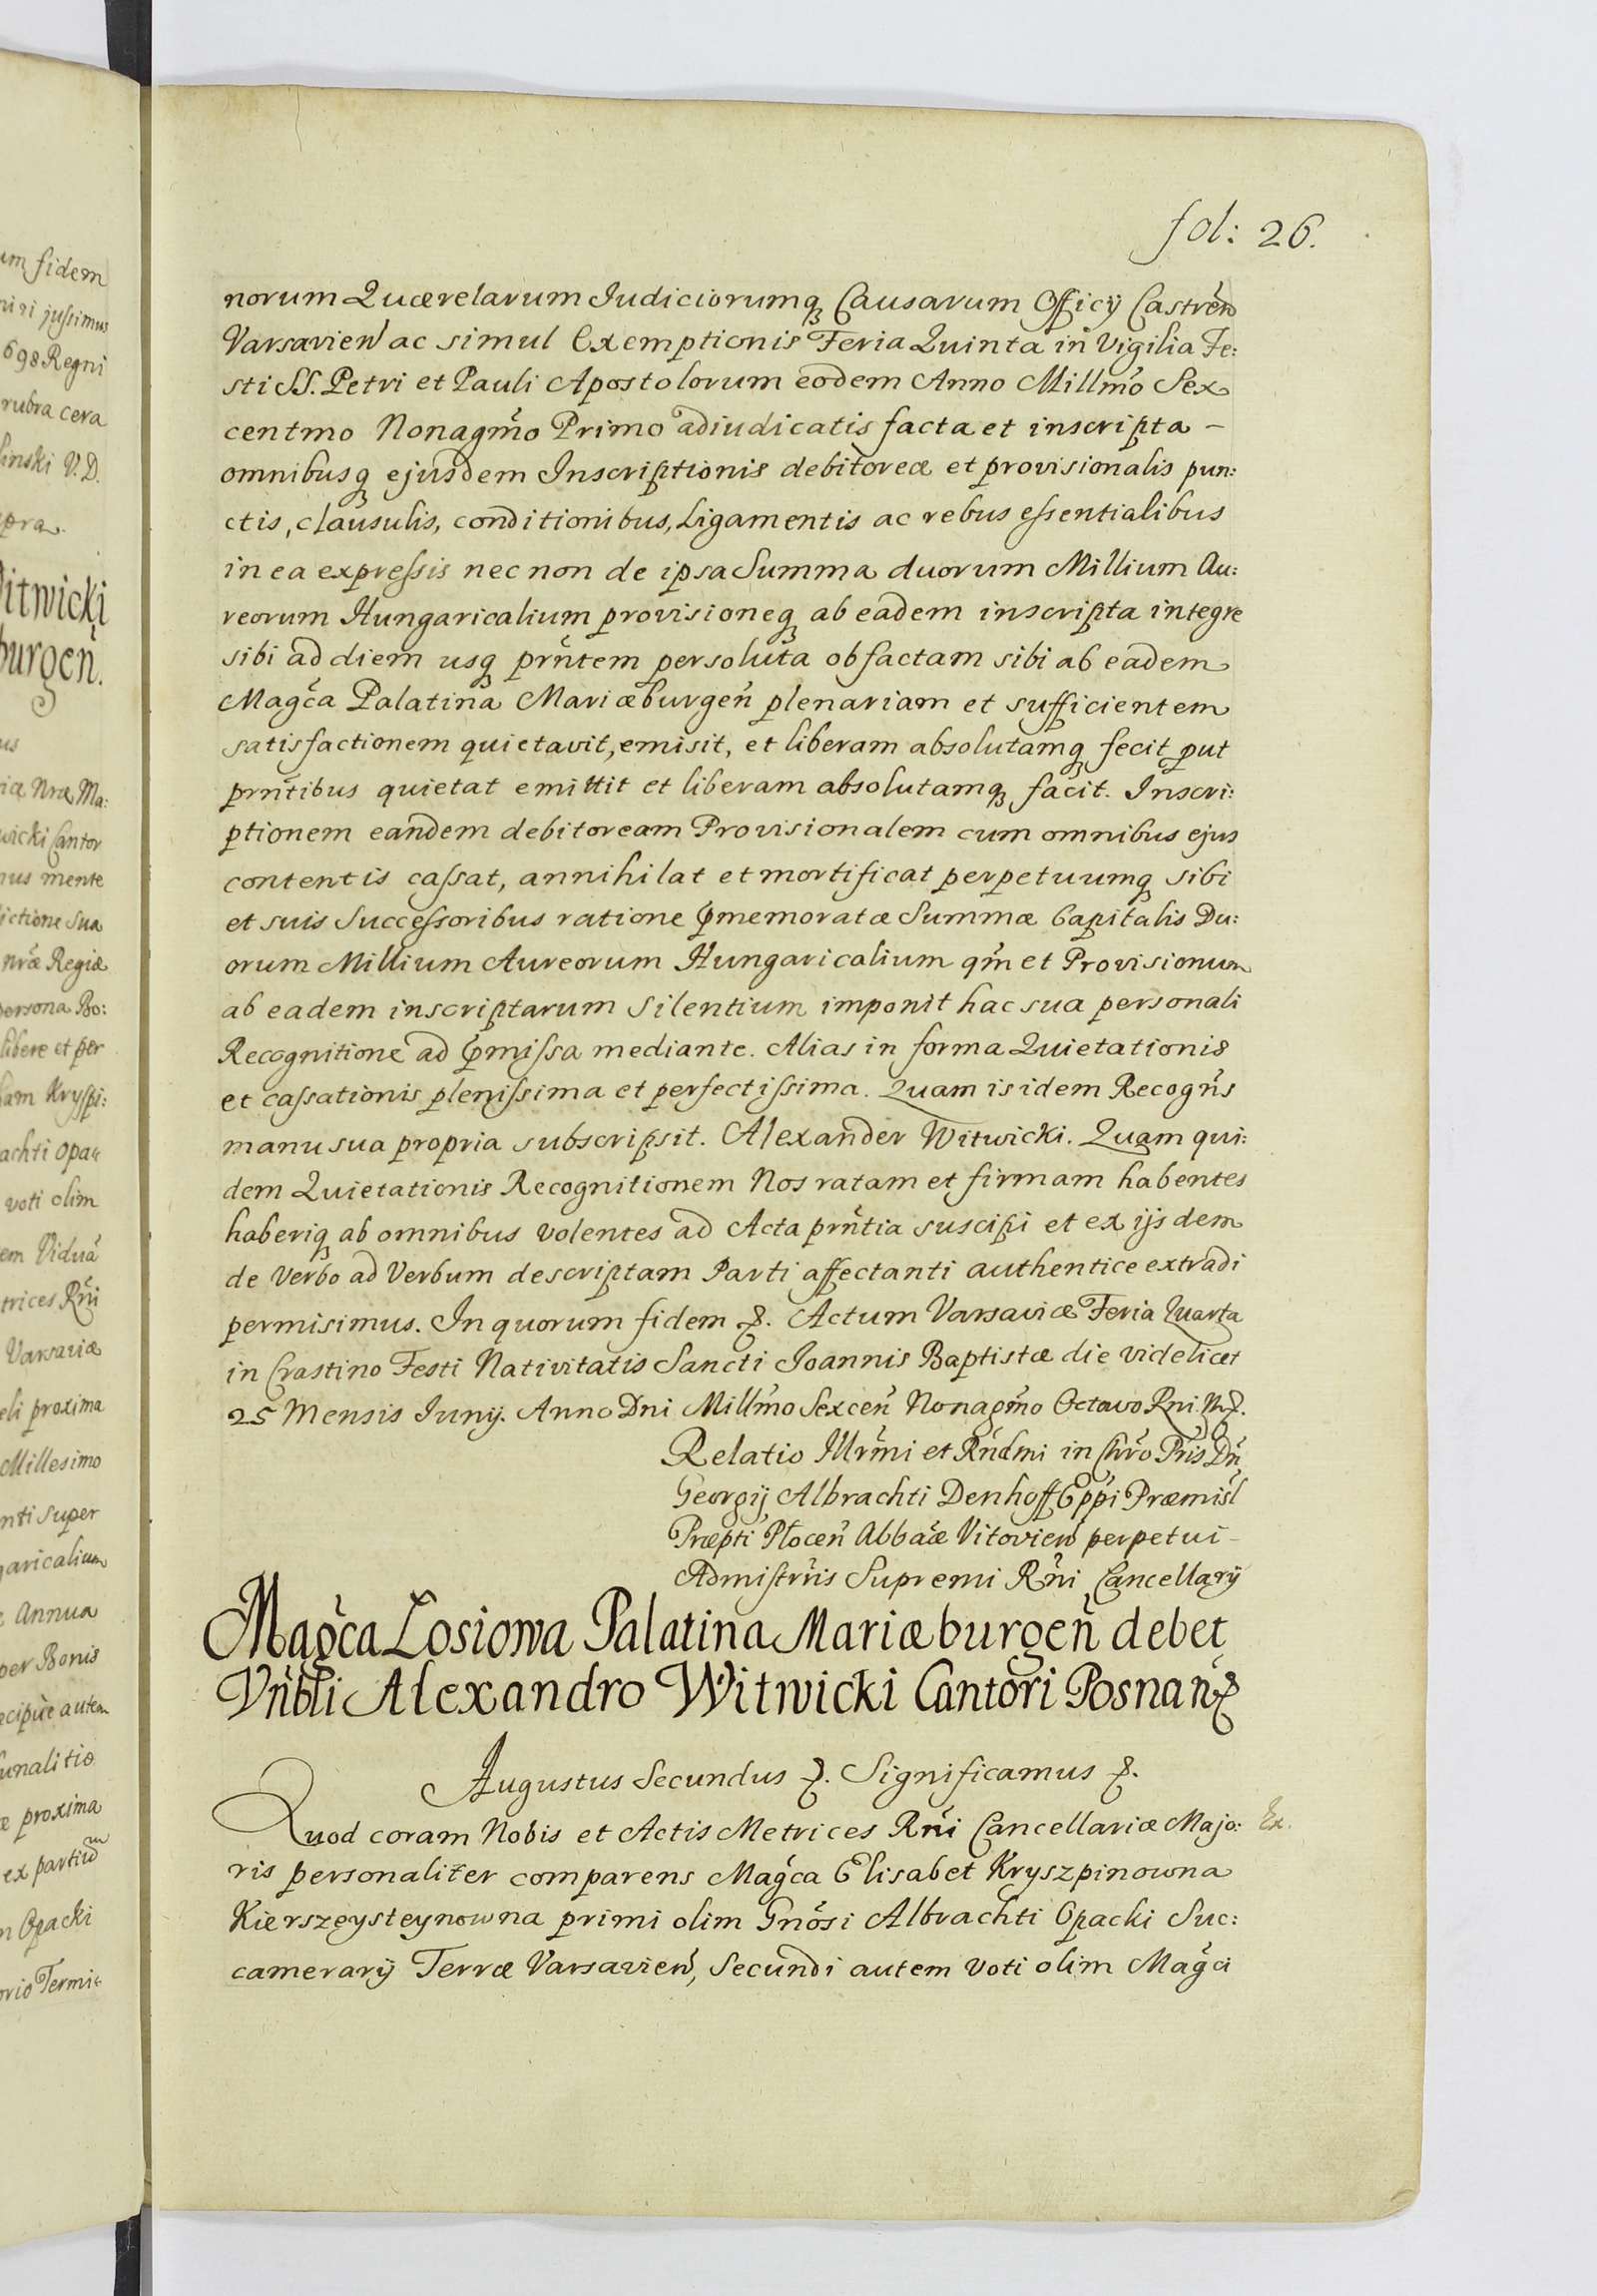 fol: 26.
norum Quærelarum Iudiciorumq Causarum Officij Castren̄
Varsavien̄ ac simul Exemptionis Feria Quinta in Vigilia Fe:
sti SS. Petri et Pauli Apostolorum eodem Anno Millm̄o Sex
centmo Nonagm̄o Primo adiudicatis facta et inscripta –
omnibusq ejusdem Inscriptionis debitoreæ et provisionalis pun:
ctis, clausulis, conditionibus, Ligamentis ac rebus essentialibus
in ea expressis nec non de ipsa Summa duorum Millium Au:
reorum Hungaricalium provisioneq ab eadem inscripta integre
sibi ad diem usq prn̄tem persoluta ob factam sibi ab eadem
Magc̄a Palatina Mariæburgen̄ plenariam et sufficientem
satisfactionem quietavit, emisit, et liberam absolutamq fecit put
prn̄tibus quietat emittit et liberam absolutamq facit. Inscri:
ptionem eandem debitoream Provisionalem cum omnibus ejus
contentis cassat, annihilat et mortificat perpetuumq sibi
et suis Successoribus ratione p̄memoratæ Summæ Capitalis Du:
orum Millium Aureorum Hungaricalium qm̄ et Provisionum
ab eadem inscriptarum Silentium imponit hac sua personali
Recognitione ad p̄missa mediante. Alias in forma Quietationis
et cassationis plenissima et perfectissima. Quam is idem Recogn̄s
manu sua propria subscripsit. Alexander Witwicki. Quam qui:
dem Quietationis Recognitionem Nos ratam et firmam habentes
haberiq ab omnibus volentes ad Acta prn̄tia suscipi et ex ijsdem
de Verbo ad Verbum descriptam Parti affectanti authentice extradi
permisimus. In quorum fidem &. Actum Varsaviæ Feria Quarta
in Crastino Festi Nativitatis Sancti Joannis Baptistæ die videlicet
25 Mensis Iunij. Anno Dni Millm̄o Sexcen̄ Nonagm̄o Octavo Rni N &.
Relatio Illrm̄i et Rn̄dmi in Chr̄o Pr̄is Dn̄
Georgij Albrachti Denhoff Eppi Præmisl
Præpti Plocen̄ Abbaæ Vitovien̄ perpetui –
Admistrr̄is Supremi Rn̄i Cancellarij
Magc̄a Losiowa Palatina Mariæburgen̄ debet
Vn̄bli Alexandro Witwicki Cantori Posnan̄ &
Augustus Secundus &. Significamus &.
Quod coram Nobis et Actis Metrices Rn̄i Cancellariæ Majo: Ex.
ris personaliter comparens Magc̄a Elisabet Kryszpinowna
Kierszeysteynowna primi olim Gnōsi Albrachti Opacki Suc:
camerarij Terræ Varsavien̄, Secundi autem Voti olim Magc̄i